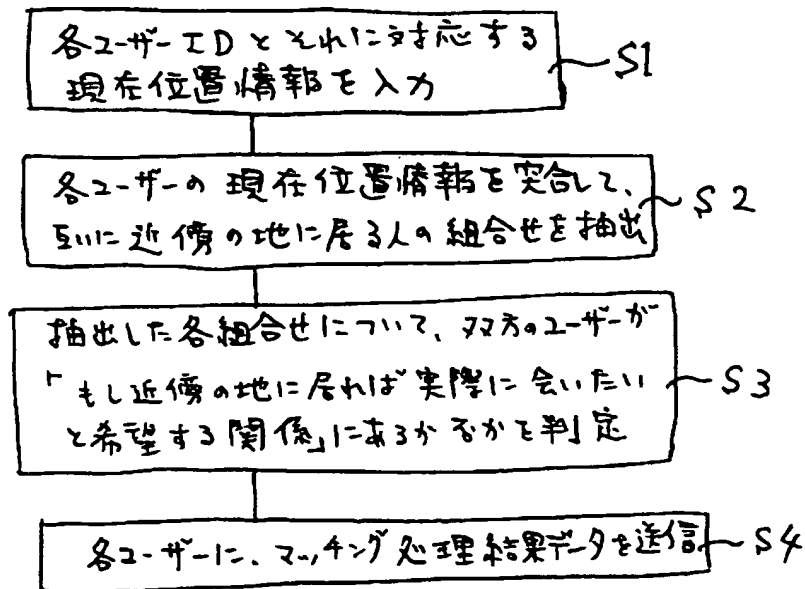 各ユーザーIDとそれに対応する
現在位置情報を入力
S1
各ユーザーの現在位置情報を突合して、
互いに近傍の地に居る人の組合せを抽出
S2
抽出した各組合せについて、双方のユーザーが
「もし近傍の地に居れば実際に会いたい
と希望する関係」にあるか否かを判定
S3
各ユーザーに、マッチング処理結果データを送信
S4